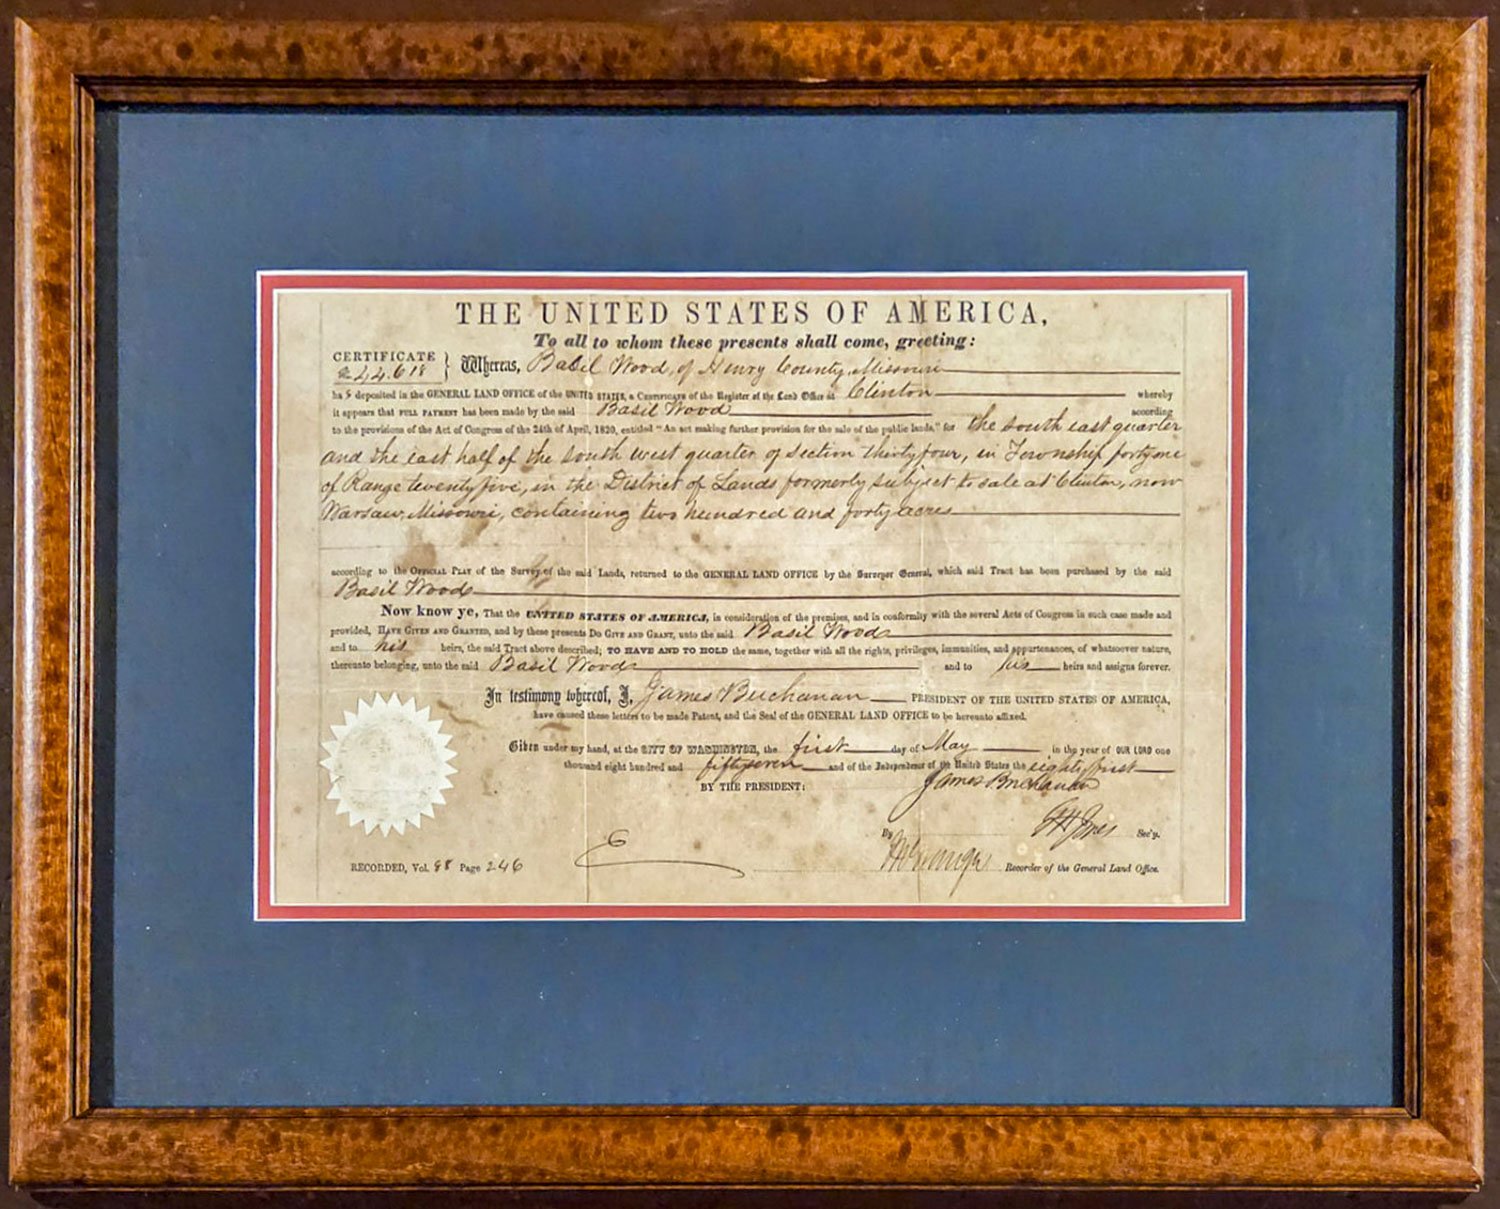 THE UNITED STATES OF AMERICA,
To all to whom these presents shall come, greeting:
CERTIFICATE
No 44.618 } Whereas, Basil Wood, of Henry County, Missouri
ha s deposited in the GENERAL LAND OFFICE of the UNITED STATES, a CERTIFICATE of the Register of the Land Office at Clinton whereby
it appears that FULL PAYMENT has been made by the said Basil Wood according
to the provisions of the Act of Congress of the 24th of April, 1820, entitled "An act making further provision for the sale of the public lands," for the South east quarter
and the east half of the South west quarter of Section thirty four, in Township forty one
of Range twenty five, in the District of Lands formerly subject to sale at Clinton, now
Warsaw, Missouri, containing two hundred and forty acres
according to the OFFICIAL PLAT of the Survey of the said Lands, returned to the GENERAL LAND OFFICE by the Surveyor General, which said Tract has been purchased by the said
Basil Woods
Now know ye, That the UNITED STATES OF AMERICA, in consideration of the premises, and in conformity with the several Acts of Congress in such case made and
provided, HAVE GIVEN AND GRANTED, and by these presents DO GIVE AND GRANT, unto the said Basil Woods
and to his heirs, the said Tract above described; TO HAVE AND TO HOLD the same, together with all the rights, privileges, immunities, and appurtenances, of whatsoever nature,
thereunto belonging, unto the said Basil Woods and to his heirs and assigns forever.
In testimony whereof, I, James Buchanan PRESIDENT OF THE UNITED STATES OF AMERICA,
have caused these letters to be made Patent, and the Seal of the GENERAL LAND OFFICE to be hereunto affixed.
Given under my hand, at the CITY OF WASHINGTON, the first day of May in the year of OUR LORD one
thousand eight hundred and fifty seven and of the Independence of the United States the eighty first
BY THE PRESIDENT: James Buchanan
By Jones Sec'y.
RECORDED, Vol. 98 Page 246 Recorder of the General Land Office.